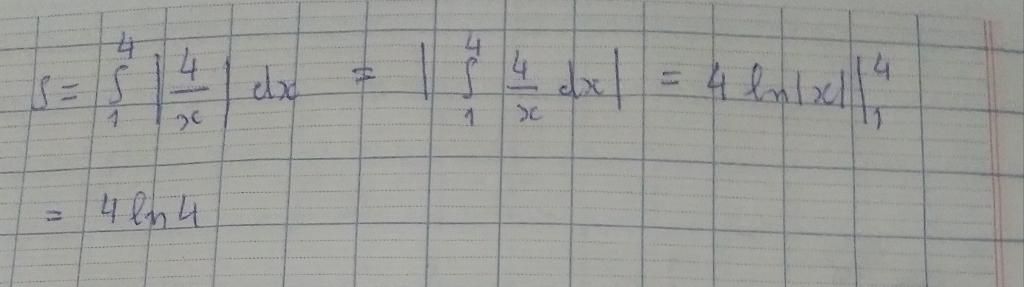 S = ∫₁⁴ |4/x| dx = |∫₁⁴ 4/x dx| = 4 ln|x| |₁⁴
= 4 ln 4